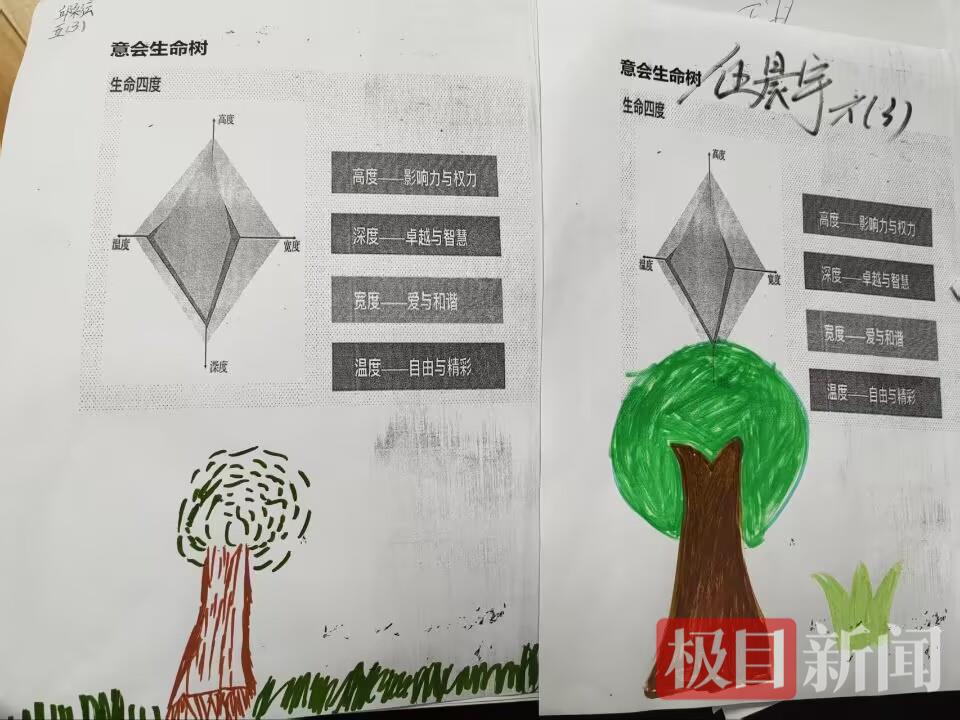 五(3)
意会生命树
生命四度
高度
温度
宽度
深度
高度——影响力与权力
深度——卓越与智慧
宽度——爱与和谐
温度——自由与精彩
意会生命树
伍晨宇
六(3)
生命四度
高度
温度
宽度
高度——影响力与权力
深度——卓越与智慧
宽度——爱与和谐
温度——自由与精彩
极目新闻